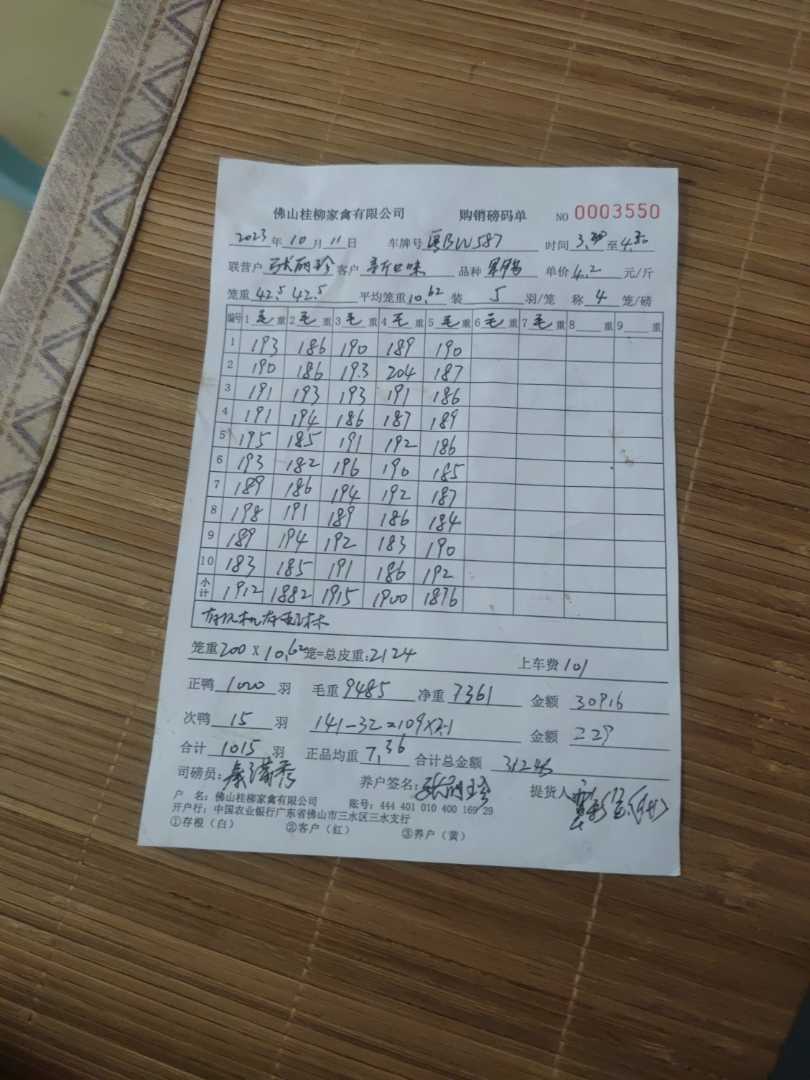 佛山桂柳家禽有限公司 购销磅码单 NO 0003550
2023年10月11日 车牌号 粤BW587 时间 3.30至4.30
联营户 张丽珍 客户 新口味 品种 单价 4.2 元/斤
笼重 42.5 42.5 平均笼重 10.62 装 5 羽/笼 称 4 笼/磅
编号 1 毛 重 2 毛 重 3 毛 重 4 毛 重 5 毛 重 6 毛 重 7 毛 重 8 重 9 重
1 193 186 190 189 190
2 190 186 193 204 187
3 191 193 193 191 186
4 191 194 186 187 189
5 195 185 191 192 186
6 193 182 196 190 185
7 189 186 194 192 187
8 198 191 189 186 184
9 189 194 192 183 190
10 183 185 191 186 192
小计 1912 1882 1915 1900 1876
笼重 200 X 10.62 笼=总皮重: 2124 上车费 101
正鸭 1000 羽 毛重 9485 净重 7361 金额 30916
次鸭 15 羽 141-32=109×2.1 金额 229
合计 1015 羽 正品均重 7.36 合计总金额 31246
司磅员: 养户签名: 提货人
户 名: 佛山桂柳家禽有限公司 账号: 444 401 010 400 169 29
开户行: 中国农业银行广东省佛山市三水区三水支行
①存根（白） ②客户（红） ③养户（黄）